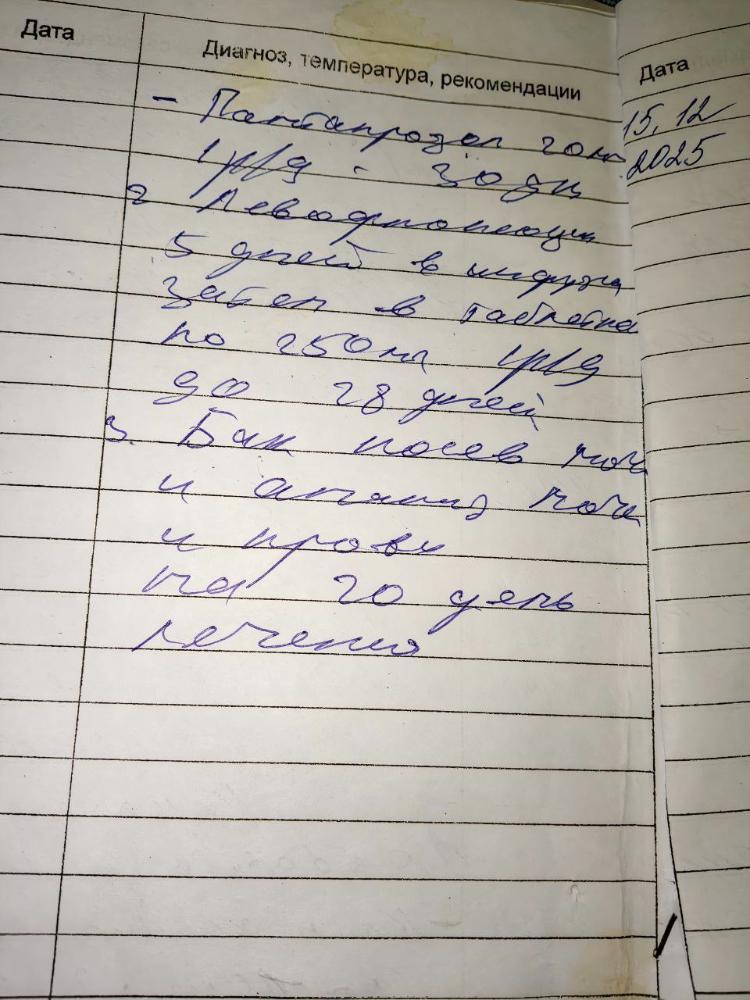 Дата
Диагноз, температура, рекомендации
- Пантапрозол 20 мг
1 р/д - 30 дн
2 Левофлоксацин
5 дней в инфузи
затем в таблетка
по 250 мг 1 р/д
до 28 дней
3. Бак посев мочи
и анализ мочи
и крови
на 20 день
лечения
Дата
15.12
2025